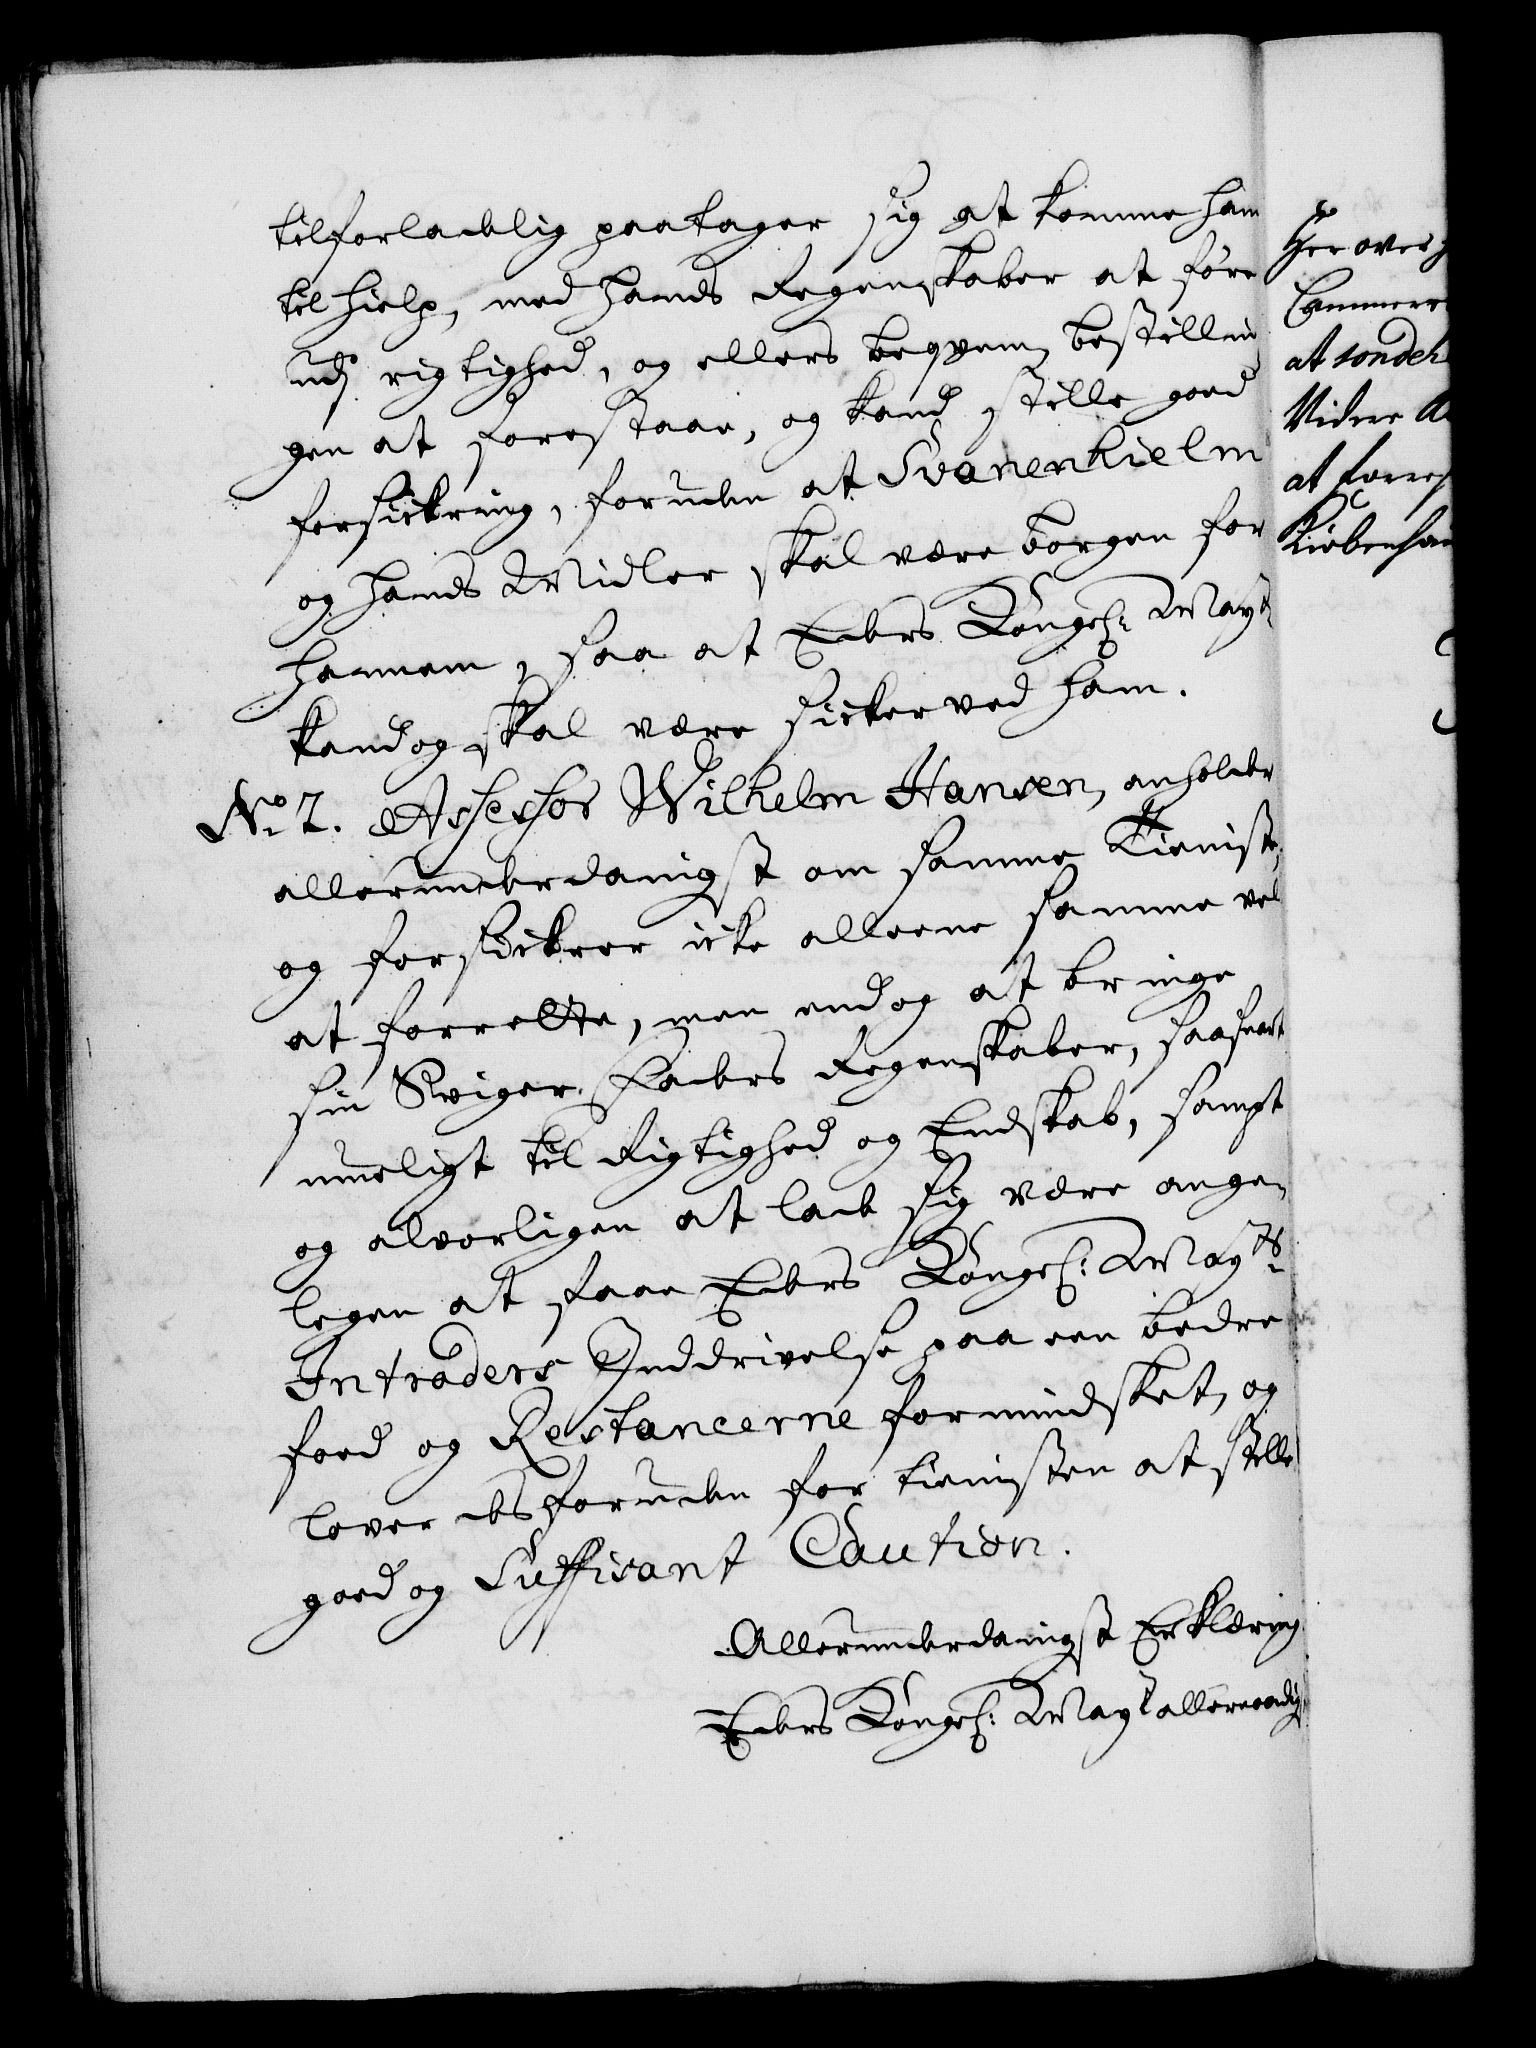 tilforladelig paatager sig at komme ham
til hielp, med hands Regenskaber at före
udj rigtighed, og ellers beqvem bestillin
gen at forestaae, og kand stille goed
forsickring, foruden at Svanenhielm
og hands Midler skal være borgen for
hannem, saa at Eders Kongel: Mayt:
kand og skal være sicker ved ham.
No 2. Assessor Wilhelm Hansen, anholder
allerunderdanigst om samme Tieniste,
og forsickrer icke alleene samme vel
at forrette, men endog at bringe
sin Sviger Faders Regenskaber, saasnart
mueligt til Rigtighed og Endskab, sampt
og alvorligen at lade sig være angen
legen at faae Eders Kongel: Mayts:
Intraders Inddrivelse paa een bedre
foed og Restancerne formindsket, og
lover desforuden for tienisten at stille
goed og Suffisant Caution.
Allerunderdanigst Erklæring
Eders Kongel: Mayt allernaadig
Her over
Cammer
at
Vidner
at forres
Kiøbenhav